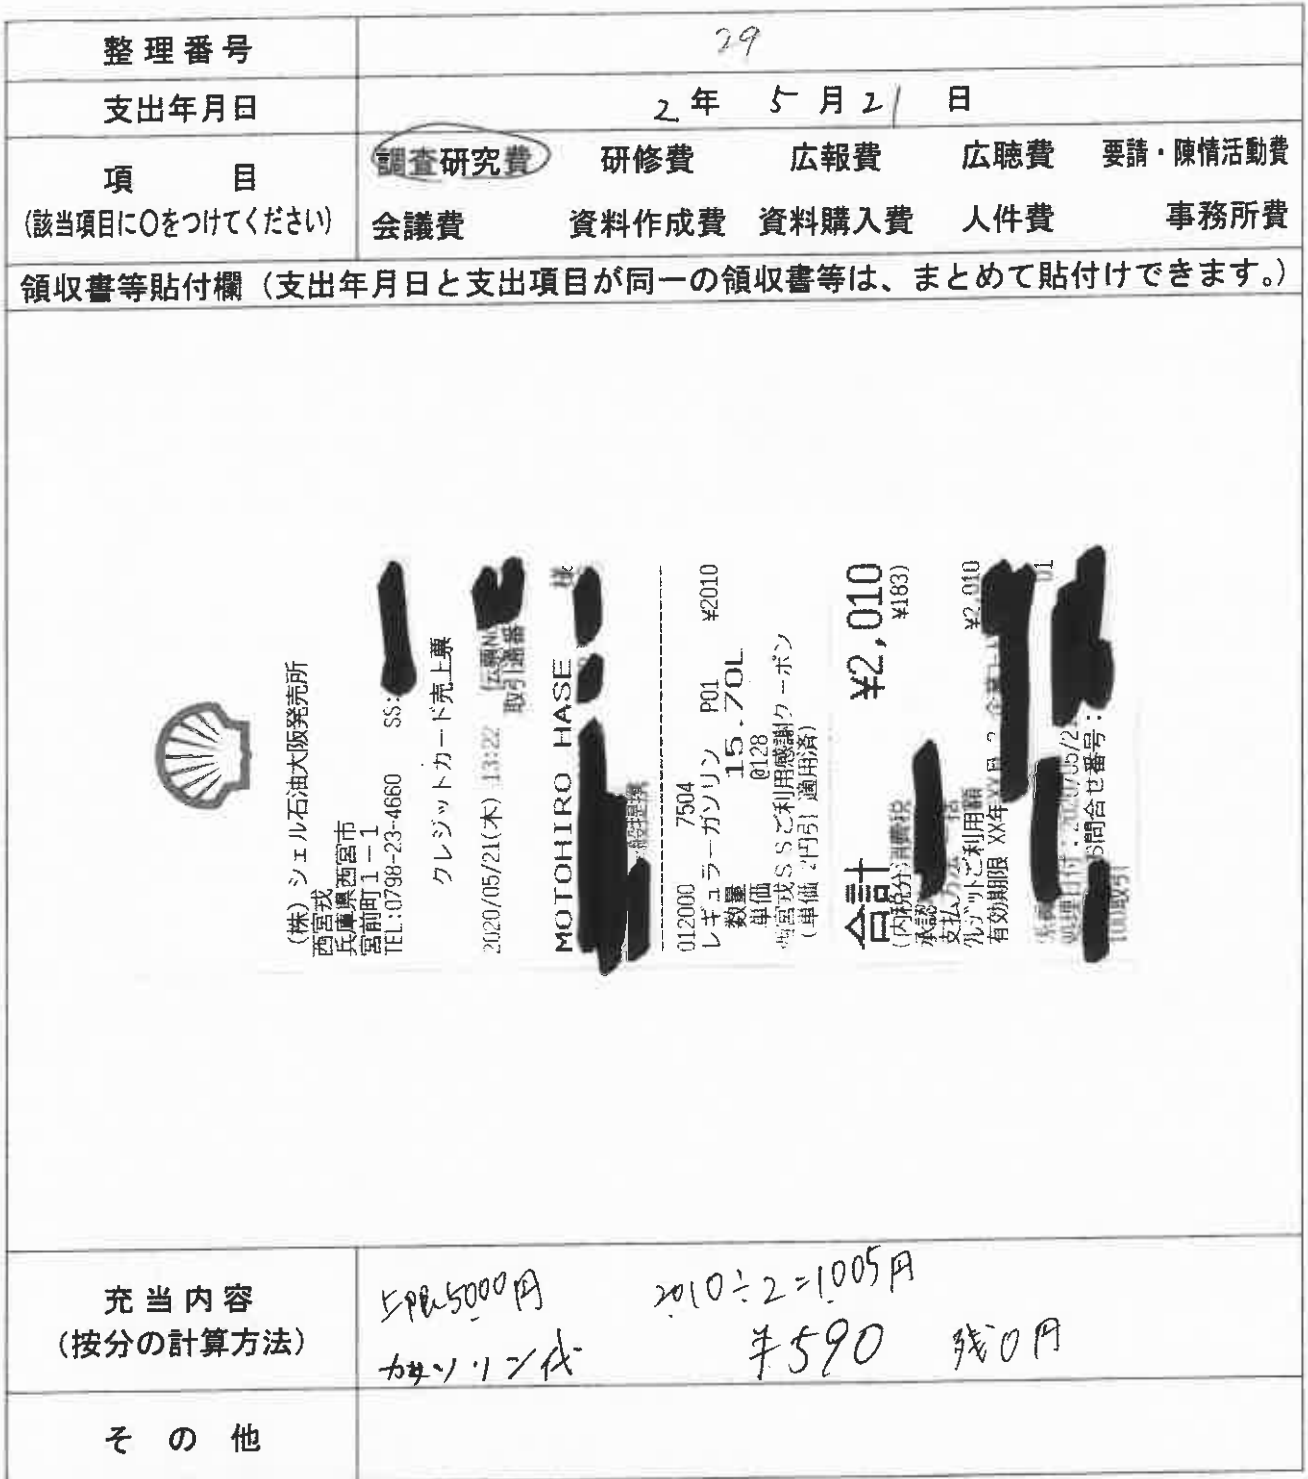 整理番号 29
支出年月日 2年 5月21日
項目 調査研究費 研修費 広報費 広聴費 要請・陳情活動費
(該当項目に○をつけてください) 会議費 資料作成費 資料購入費 人件費 事務所費
領収書等貼付欄（支出年月日と支出項目が同一の領収書等は、まとめて貼付けできます。）
(株)シェル石油大阪発売所
西宮戎
兵庫県西宮市
宮前町1-1
TEL:0798-23-4660 SS:
クレジットカード売上票
2020/05/21(木) 13:22 伝票NO
取引通番
MOTOHIRO HASE 様
012000 7504
レギュラーガソリン P01 ¥2010
数量 15.70L
単価 @128
西宮戎SSご利用感謝クーポン
(単価 2円引 適用済)
合計 ¥2,010
(内税分消費税 ¥183)
承認
支払方法 一括
クレジットご利用額 ¥2,010
有効期限 XX年XX月
処理日付:2020/05/2
お問合せ番号:
100取引
充当内容 上限5000円 2010÷2=1005円
(按分の計算方法) ガソリン代 ¥590 残0円
その他